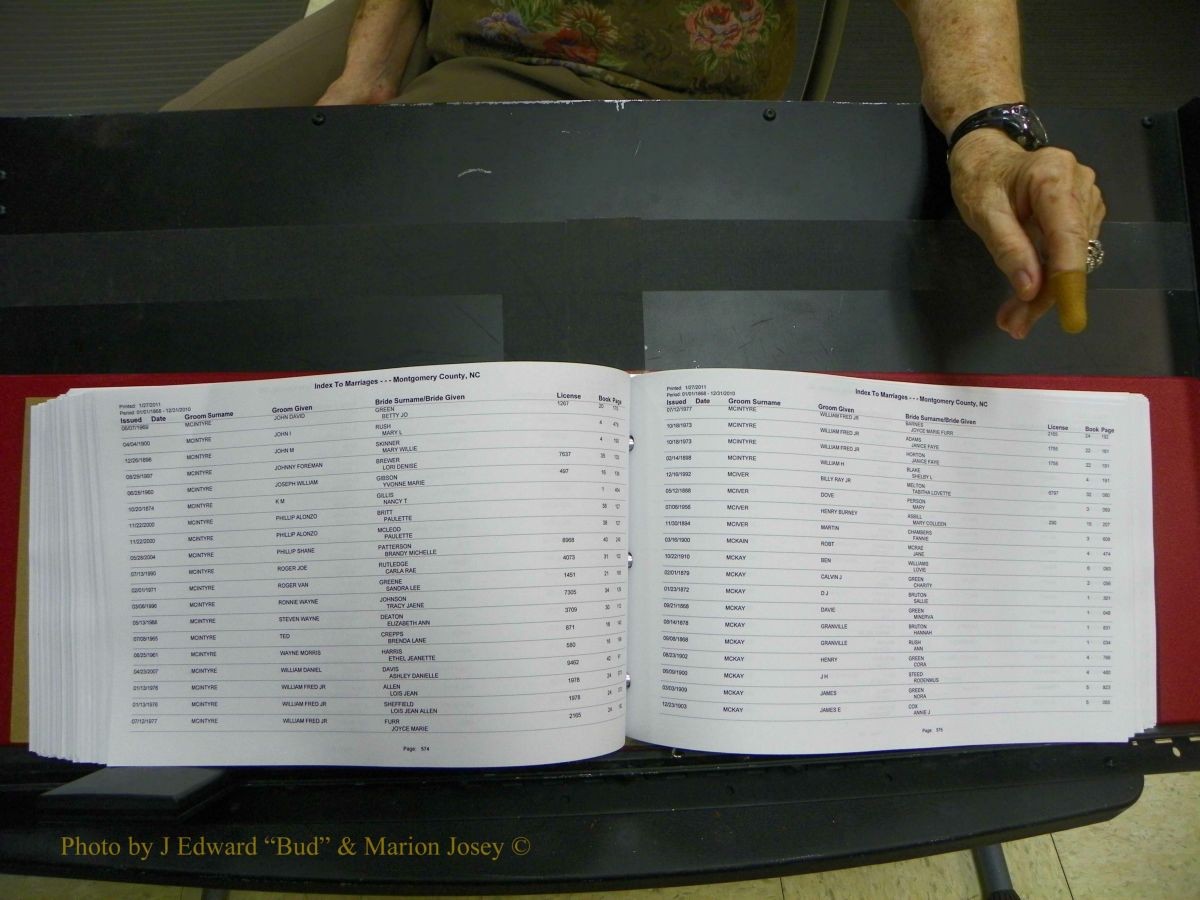 Index To Marriages - - - Montgomery County, NC
Printed: 1/27/2011
Period: 01/01/1868 - 12/31/2010
Issued Date Groom Surname Groom Given Bride Surname/Bride Given License Book Page
06/07/1969 MCINTYRE JOHN DAVID GREEN 1267 20
BETTY JO
04/04/1900 MCINTYRE JOHN I RUSH 4
MARY L
12/26/1896 MCINTYRE JOHN M SKINNER 4
MARY WILLIE
08/29/1997 MCINTYRE JOHNNY FOREMAN BREWER 7637 35
LORI DENISE
06/28/1960 MCINTYRE JOSEPH WILLIAM GIBSON 497 16
YVONNE MARIE
10/20/1874 MCINTYRE K M GILLIS 1
NANCY T
11/22/2000 MCINTYRE PHILLIP ALONZO BRITT 38
PAULETTE
11/22/2000 MCINTYRE PHILLIP ALONZO MCLEOD 38
PAULETTE
05/28/2004 MCINTYRE PHILLIP SHANE PATTERSON 8968 40
BRANDY MICHELLE
07/13/1990 MCINTYRE ROGER JOE RUTLEDGE 4073 31
CARLA RAE
02/01/1971 MCINTYRE ROGER VAN GREENE 1451 21
SANDRA LEE
03/06/1996 MCINTYRE RONNIE WAYNE JOHNSON 7305 34
TRACY JAENE
05/13/1988 MCINTYRE STEVEN WAYNE DEATON 3709 30
ELIZABETH ANN
07/08/1965 MCINTYRE TED CREPPS 871 18
BRENDA LANE
06/25/1961 MCINTYRE WAYNE MORRIS HARRIS 580 16
ETHEL JEANETTE
04/23/2007 MCINTYRE WILLIAM DANIEL DAVIS 9462 42
ASHLEY DANIELLE
01/13/1976 MCINTYRE WILLIAM FRED JR ALLEN 1978 24
LOIS JEAN
01/13/1976 MCINTYRE WILLIAM FRED JR SHEFFIELD 1978 24
LOIS JEAN ALLEN
07/12/1977 MCINTYRE WILLIAM FRED JR FURR 2165 24
JOYCE MARIE
Page: 574
Index To Marriages - - - Montgomery County, NC
Printed: 1/27/2011
Period: 01/01/1868 - 12/31/2010
Issued Date Groom Surname Groom Given Bride Surname/Bride Given License Book Page
07/12/1977 MCINTYRE WILLIAM FRED JR BARNES 2165 24 192
JOYCE MARIE FURR
10/18/1973 MCINTYRE WILLIAM FRED JR ADAMS 1756 22 191
JANICE FAYE
10/18/1973 MCINTYRE WILLIAM FRED JR HORTON 1756 22 191
JANICE FAYE
02/14/1898 MCINTYRE WILLIAM H BLAKE 4 191
SHELBY L
12/16/1992 MCIVER BILLY RAY JR MELTON 6797 32
TABITHA LOVETTE
05/12/1868 MCIVER DOVE PERSON
MARY
07/06/1956 MCIVER HENRY BURNEY ASBILL 290 15 207
MARY COLLEEN
11/30/1894 MCIVER MARTIN CHAMBERS 3
FANNIE
03/16/1900 MCKAIN ROBT MCRAE 4 474
JANE
10/22/1910 MCKAY BEN WILLIAMS 6
LOVIE
02/01/1879 MCKAY CALVIN J GREEN 2
CHARITY
01/23/1872 MCKAY D J BRUTON 1 321
SALLIE
09/21/1868 MCKAY DAVIE GREEN 1
MINERVA
08/14/1878 MCKAY GRANVILLE BRUTON 1
HANNAH
09/08/1868 MCKAY GRANVILLE RUSH 1 034
ANN
08/23/1902 MCKAY HENRY GREEN 4
CORA
06/09/1900 MCKAY J H STEED 4
RODENMUS
03/03/1909 MCKAY JAMES GREEN 5
NORA
12/23/1903 MCKAY JAMES E COX 5
ANNIE J
Page: 575
Photo by J Edward “Bud” & Marion Josey ©